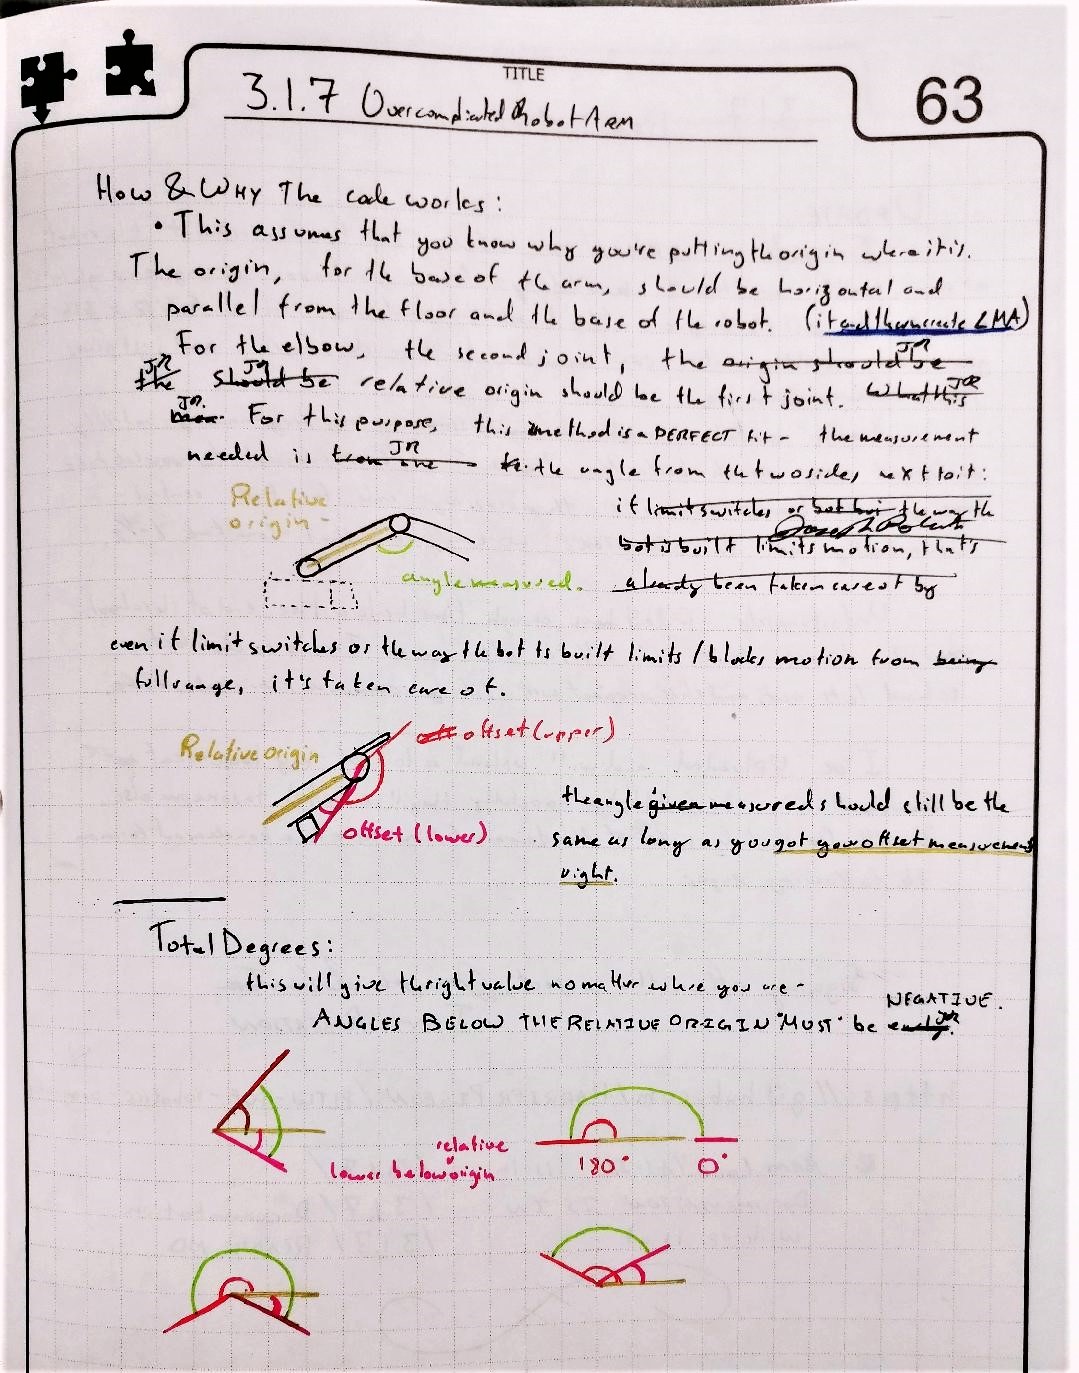 TITLE
3.1.7 Overcomplicated Robot Arm
63
How & WHY The code works:
• This assumes that you know why you're putting the origin where it is.
The origin, for the base of the arm, should be horizontal and
parallel from the floor and the base of the robot. (it and LMA)
For the elbow, the second joint, the origin should be JR
the JR should be JR relative origin should be the first joint. What this JR
JR. For this purpose, this method is a PERFECT fit - the measurement
needed is from one JR the angle from the two sides next to it:
Relative
origin -
angle measured.
if limit switches or bot the way the
bot is built limits motion, that's
already been taken care of by
even if limit switches or the way the bot is built limits / blocks motion from being
full range, it's taken care of.
Relative origin
off offset (upper)
offset (lower)
the angle given measured should still be the
same as long as you got your offset measurement
right.
Total Degrees:
this will give the right value no matter where you are -
NEGATIVE.
ANGLES BELOW THE RELATIVE ORIGIN "MUST" be JR
relative
lower below origin
180° 0°